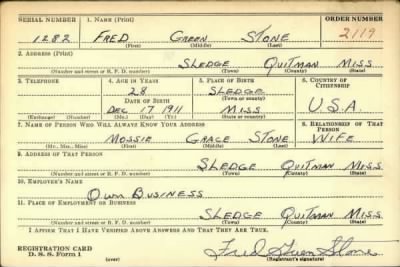 SERIAL NUMBER 1. NAME (Print) ORDER NUMBER
1282 FRED GREEN STONE 2119
(First) (Middle) (Last)
2. ADDRESS (Print)
SLEDGE QUITMAN MISS.
(Number and street or R. F. D. number) (Town) (County) (State)
3. TELEPHONE 4. AGE IN YEARS 5. PLACE OF BIRTH 6. COUNTRY OF CITIZENSHIP
28 SLEDGE
DATE OF BIRTH (Town or county)
DEC 17 1911 MISS U.S.A.
(Exchange) (Number) (Mo.) (Day) (Yr.) (State or country)
7. NAME OF PERSON WHO WILL ALWAYS KNOW YOUR ADDRESS 8. RELATIONSHIP OF THAT PERSON
MOSSIE GRACE STONE WIFE
(Mr., Mrs., Miss) (First) (Middle) (Last)
9. ADDRESS OF THAT PERSON
SLEDGE QUITMAN MISS.
(Number and street or R. F. D. number) (Town) (County) (State)
10. EMPLOYER'S NAME
OWN BUSINESS
11. PLACE OF EMPLOYMENT OR BUSINESS
SLEDGE QUITMAN MISS
(Number and street or R. F. D. number) (Town) (County) (State)
I AFFIRM THAT I HAVE VERIFIED ABOVE ANSWERS AND THAT THEY ARE TRUE.
REGISTRATION CARD
D. S. S. Form 1 (over) Fred Green Stone
(Registrant's signature)